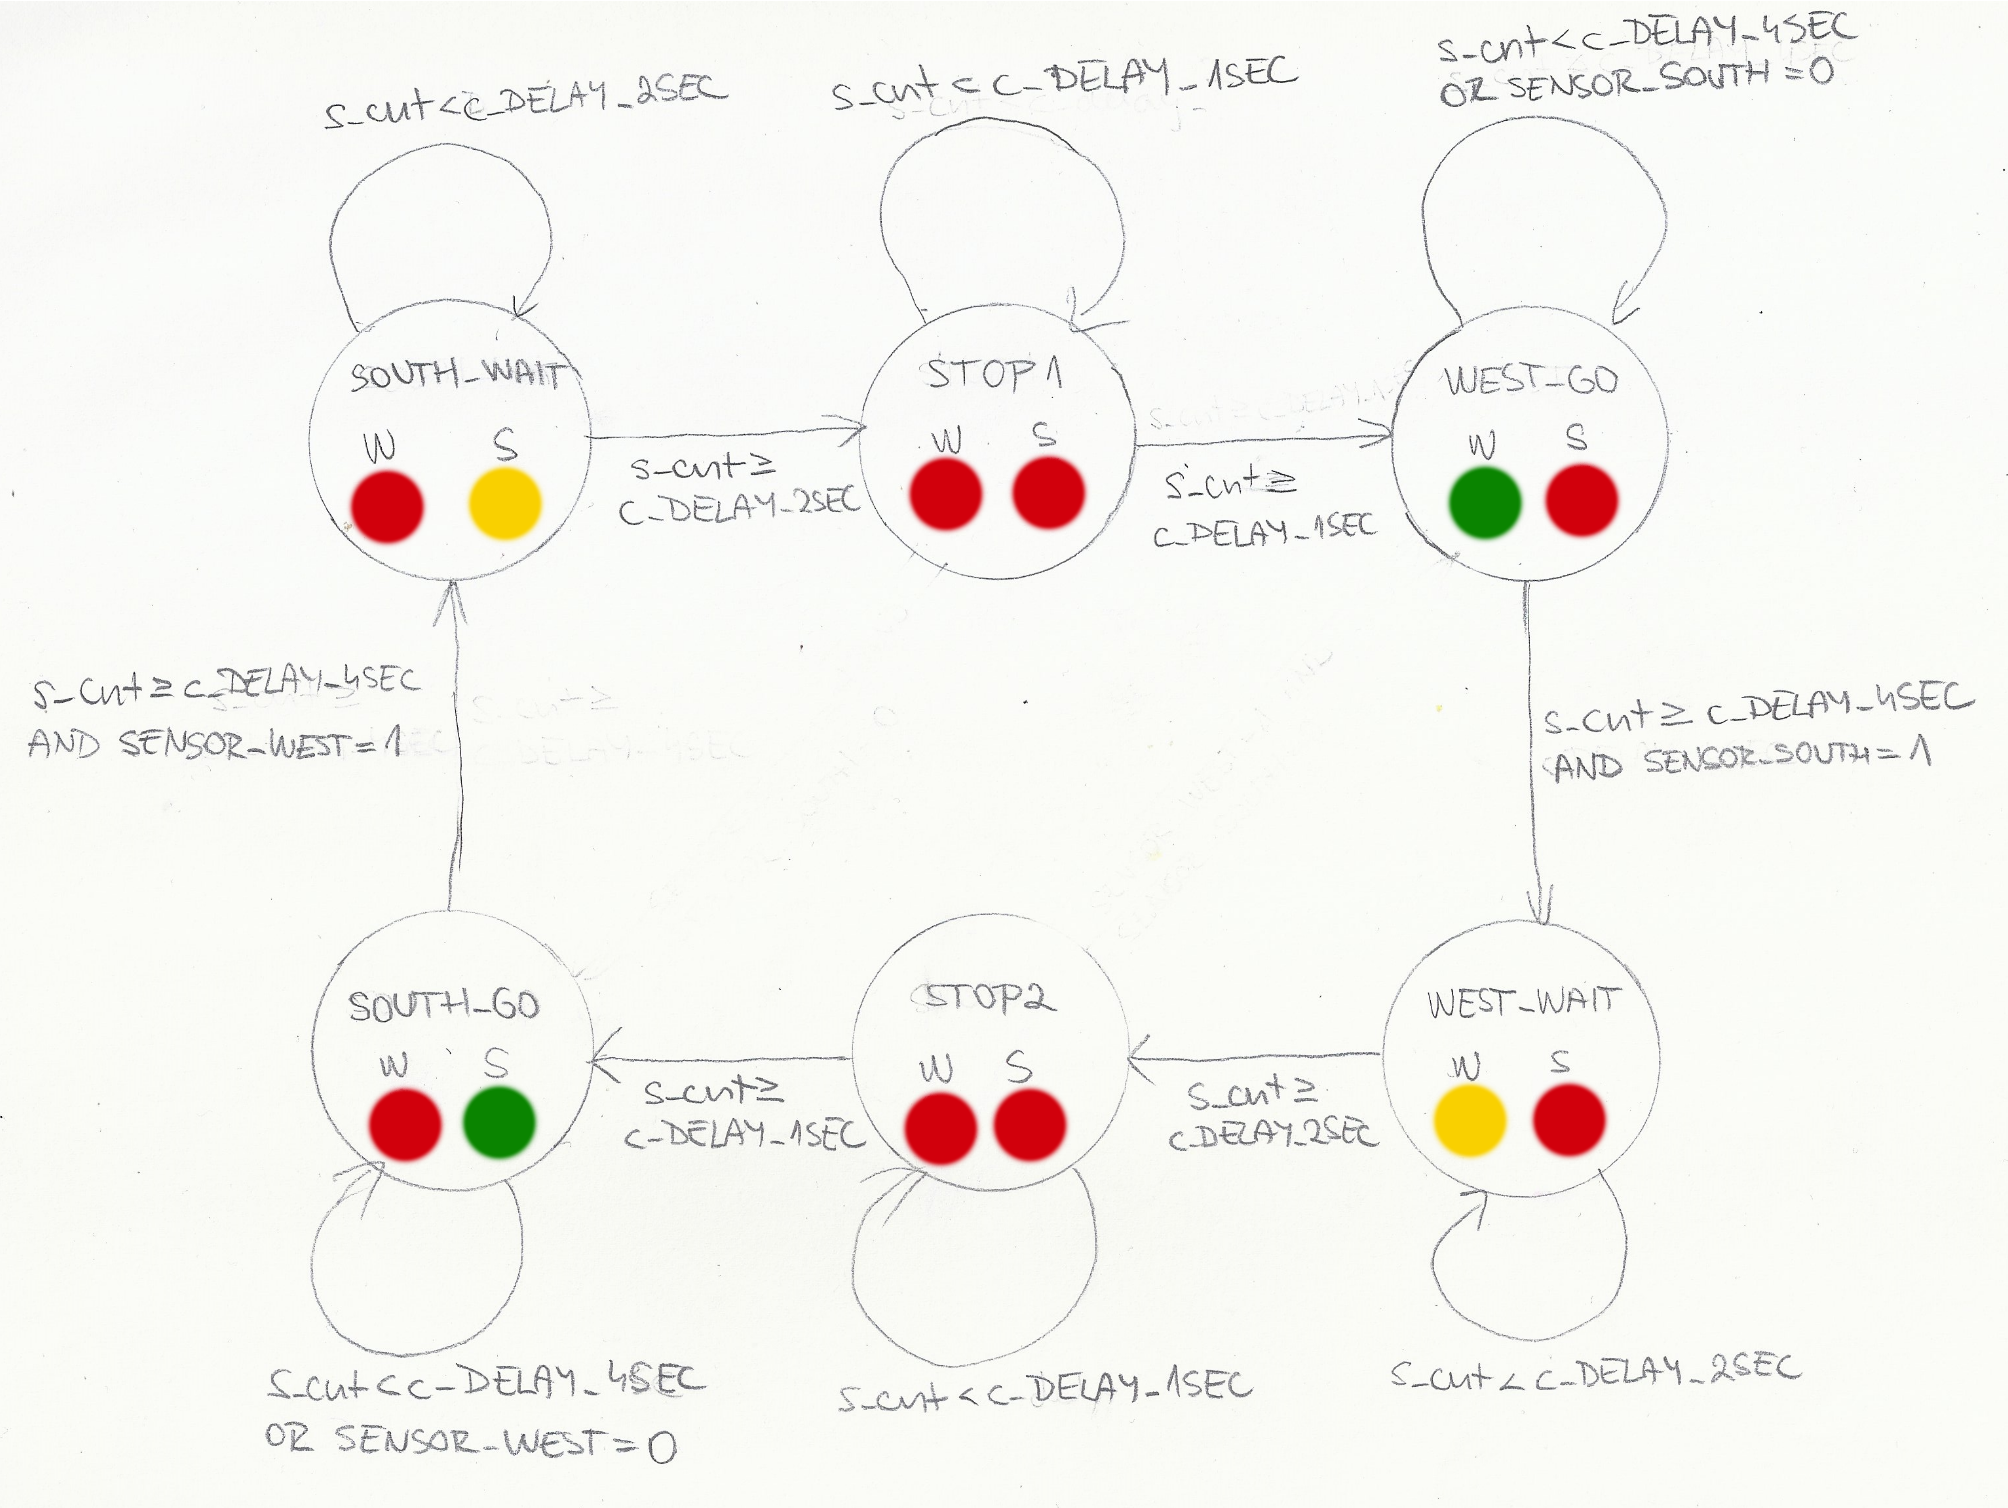 s_cnt < c_DELAY_2SEC
s_cnt < c_DELAY_1SEC
s_cnt < c_DELAY_4SEC
OR SENSOR_SOUTH = 0
SOUTH_WAIT
W S
s_cnt ≥
c_DELAY_2SEC
STOP1
W S
s_cnt ≥
c_DELAY_1SEC
WEST_GO
W S
s_cnt ≥ c_DELAY_4SEC
AND SENSOR_WEST = 1
s_cnt ≥ c_DELAY_4SEC
AND SENSOR_SOUTH = 1
SOUTH_GO
W S
s_cnt ≥
c_DELAY_1SEC
STOP2
W S
s_cnt ≥
c_DELAY_2SEC
WEST_WAIT
W S
s_cnt < c_DELAY_4SEC
OR SENSOR_WEST = 0
s_cnt < c_DELAY_1SEC
s_cnt < c_DELAY_2SEC